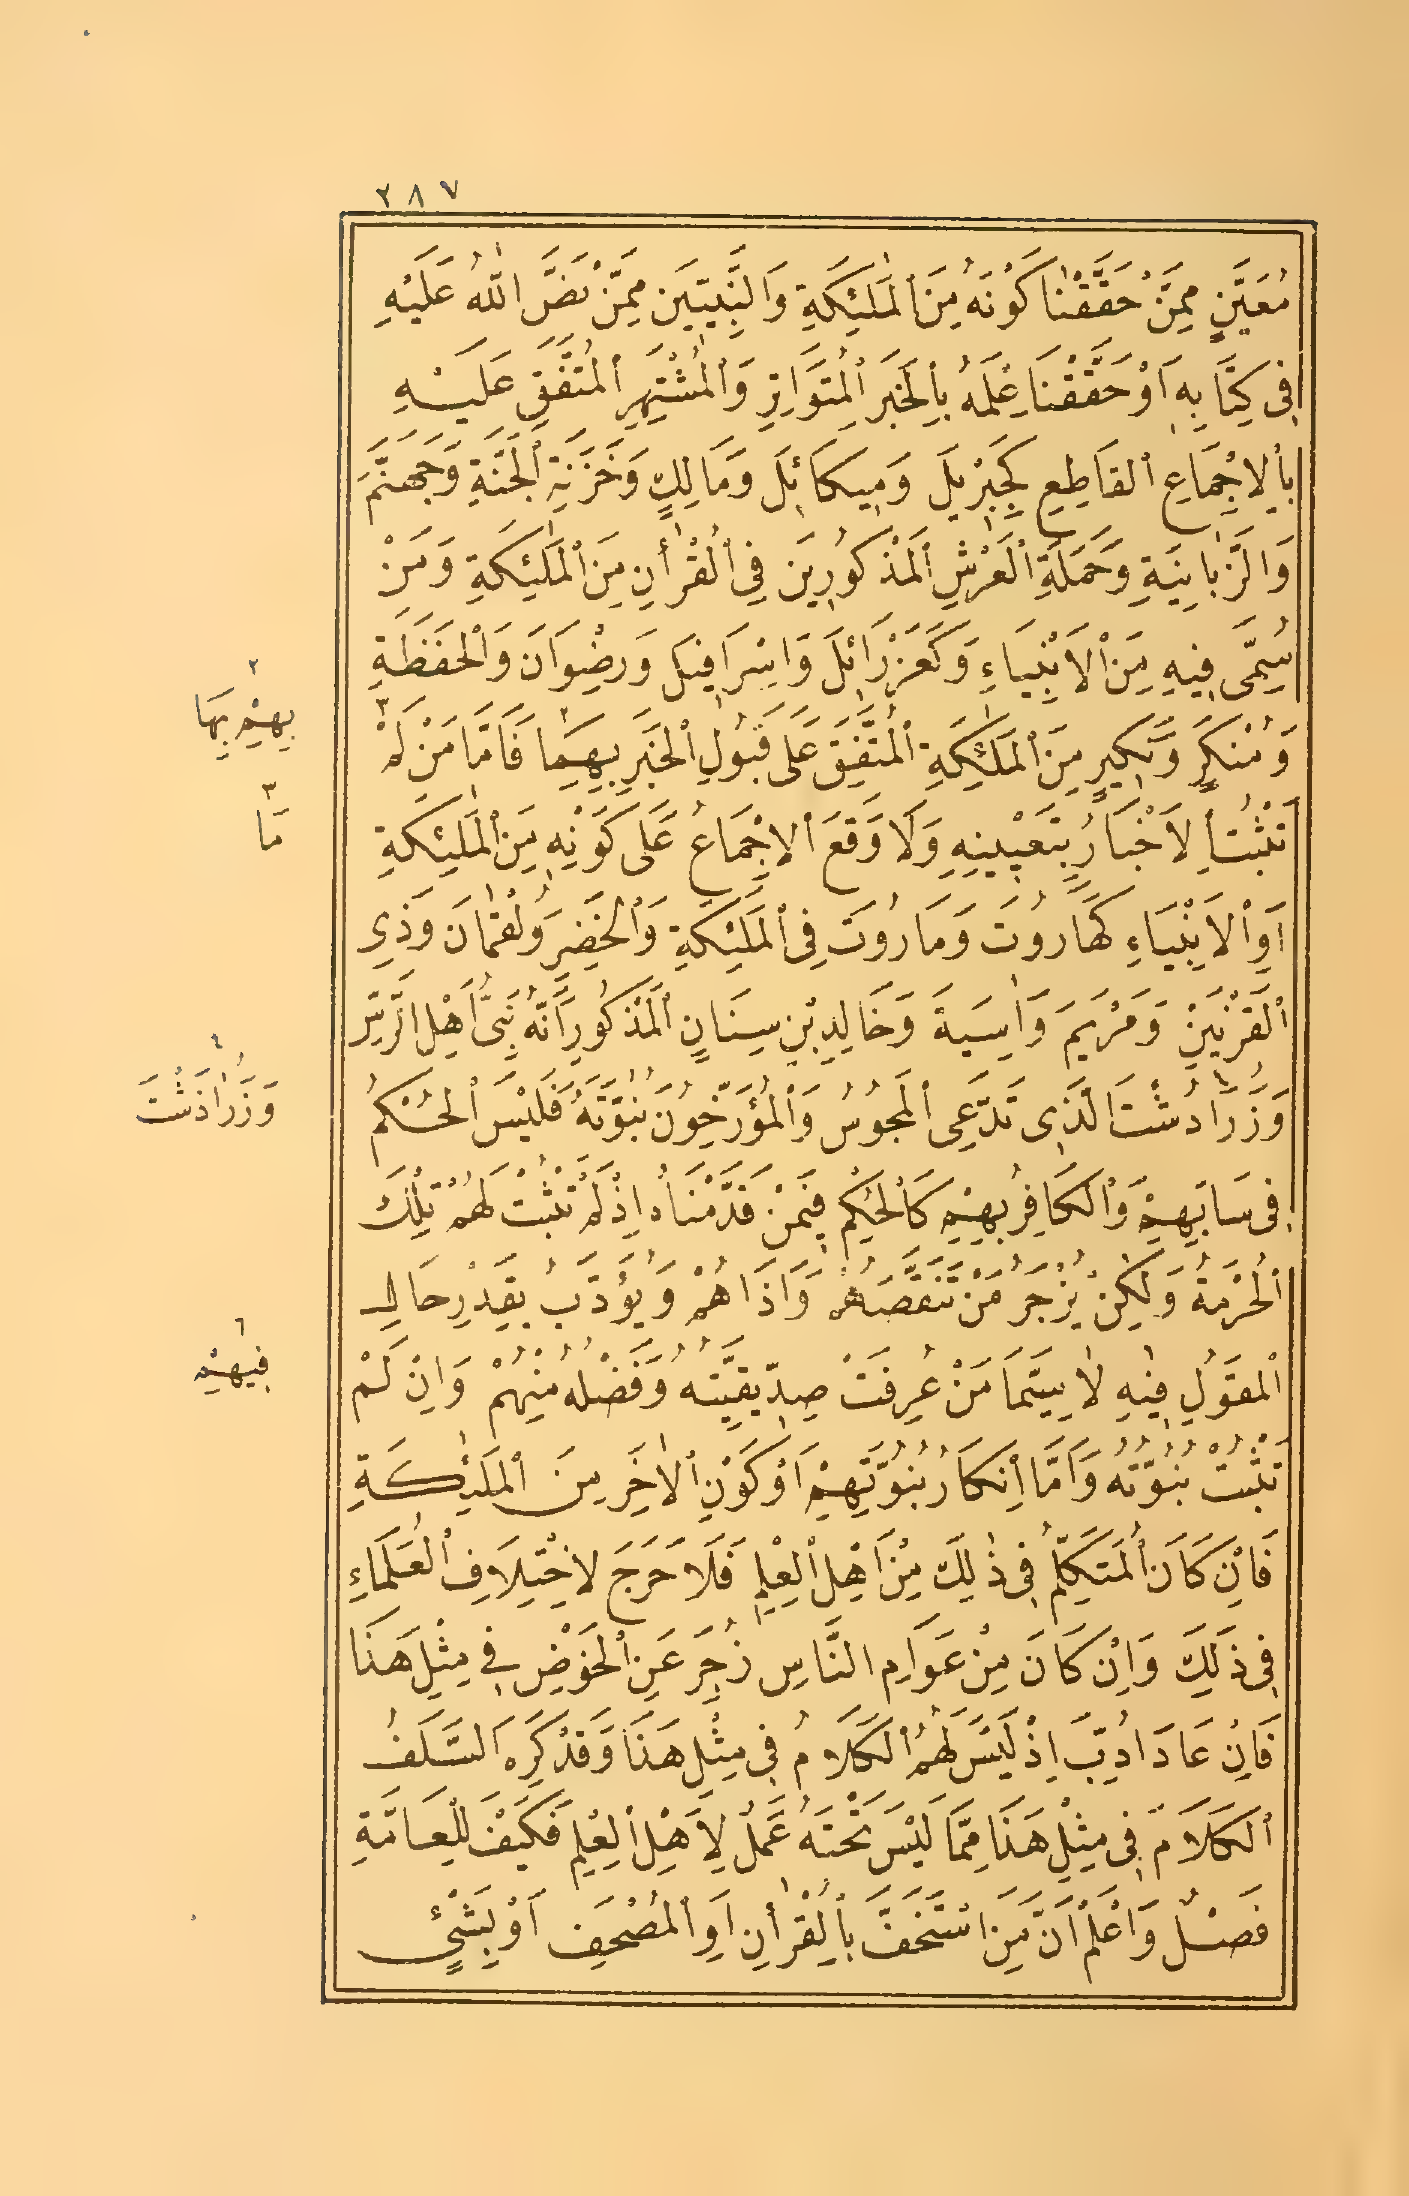 ٢٨٧
مُعَيَّنٍ مِمَّنْ حَقَّقْنَا كَوْنَهُ مِنَ الْمَلٰئِكَةِ وَالنَّبِيّينَ مِمَّنْ نَصَّ اللّٰهُ عَلَيْهِ
فِى كِتَابِهِ اَوْ حَقَّقْنَا عِلْمَهُ بِالْخَبَرِ الْمُتَوَاتِرِ وَالْمُشْتَهِرِ الْمُتَّفَقِ عَلَيْهِ
بِالْاِجْمَاعِ الْقَاطِعِ كَجِبْرِيلَ وَمِيكَائِلَ وَمَالِكٍ وَخَزَنَةِ الْجَنَّةِ وَجَهَنَّمَ
وَالزَّبَانِيَةِ وَحَمَلَةِ الْعَرْشِ الْمَذْكُورِينَ فِى الْقُرْاٰنِ مِنَ الْمَلٰئِكَةِ وَمَنْ
سُمِّىَ فِيهِ مِنَ الْاَنْبِيَاءِ وَكَعَزْرَائِلَ وَاِسْرَافِيلَ وَرِضْوَانَ وَالْحَفَظَةِ
٢
بِهِمْ بِهَا
وَمُنْكَرٍ وَنَكِيرٍ مِنَ الْمَلٰئِكَةِ الْمُتَّفَقِ عَلَى قَبُولِ الْخَبَرِ بِهِمَا فَاَمَّا مَنْ لَمْ
٣
مَا
تَثْبُتِ الْاَخْبَارُ بِتَعْيِينِهِ وَلَا وَقَعَ الْاِجْمَاعُ عَلَى كَوْنِهِ مِنَ الْمَلٰئِكَةِ
اَوِ الْاَنْبِيَاءِ كَهَارُوتَ وَمَارُوتَ فِى الْمَلٰئِكَةِ وَالْخَضِرِ وَلُقْمَانَ وَذِى
الْقَرْنَيْنِ وَمَرْيَمَ وَاٰسِيَةَ وَخَالِدِ بْنِ سِنَانٍ الْمَذْكُورِ اَنَّهُ نَبِىُّ اَهْلِ الرَّسِّ
٤
وَزَرَادَشْتَ
وَزَرَادُشْتَ الَّذِى تَدَّعِى الْمَجُوسُ وَالْمُؤَرِّخُونَ نُبُوَّتَهُ فَلَيْسَ الْحُكْمُ
فِى سَابِّهِمْ وَالْكَافِرِ بِهِمْ كَالْحُكْمِ فِيمَنْ قَدَّمْنَاهُ اِذْ لَمْ تَثْبُتْ لَهُمْ تِلْكَ
الْحُرْمَةُ وَلٰكِنْ يُزْجَرُ مَنْ تَنَقَّصَهُمْ وَاٰذَاهُمْ وَيُؤَدَّبُ بِقَدْرِ حَالِ
٦
فِيهِمْ
الْمَقُولِ فِيهِ لَا سِيَّمَا مَنْ عُرِفَتْ صِدِّيقِيَّتُهُ وَفَضْلُهُ مِنْهُمْ وَاِنْ لَمْ
تَثْبُتْ نُبُوَّتُهُ وَاَمَّا اِنْكَارُ نُبُوَّتِهِمْ اَوْ كَوْنِ الْاٰخَرِ مِنَ الْمَلٰئِكَةِ
فَاِنْ كَانَ الْمُتَكَلِّمُ فِى ذٰلِكَ مِنْ اَهْلِ الْعِلْمِ فَلَا حَرَجَ لِاخْتِلَافِ الْعُلَمَاءِ
فِى ذٰلِكَ وَاِنْ كَانَ مِنْ عَوَامِ النَّاسِ زُجِرَ عَنِ الْخَوْضِ فِى مِثْلِ هٰذَا
فَاِنْ عَادَ اُدِّبَ اِذْ لَيْسَ لَهُمُ الْكَلَامُ فِى مِثْلِ هٰذَا وَقَدْ كَرِهَ السَّلَفُ
الْكَلَامَ فِى مِثْلِ هٰذَا مِمَّا لَيْسَ تَحْتَهُ عَمَلٌ لِاَهْلِ الْعِلْمِ فَكَيْفَ لِلْعَامَّةِ
فَصْلٌ وَاعْلَمْ اَنَّ مَنِ اسْتَخَفَّ بِالْقُرْاٰنِ اَوِ الْمُصْحَفِ اَوْ بِشَيْءٍ